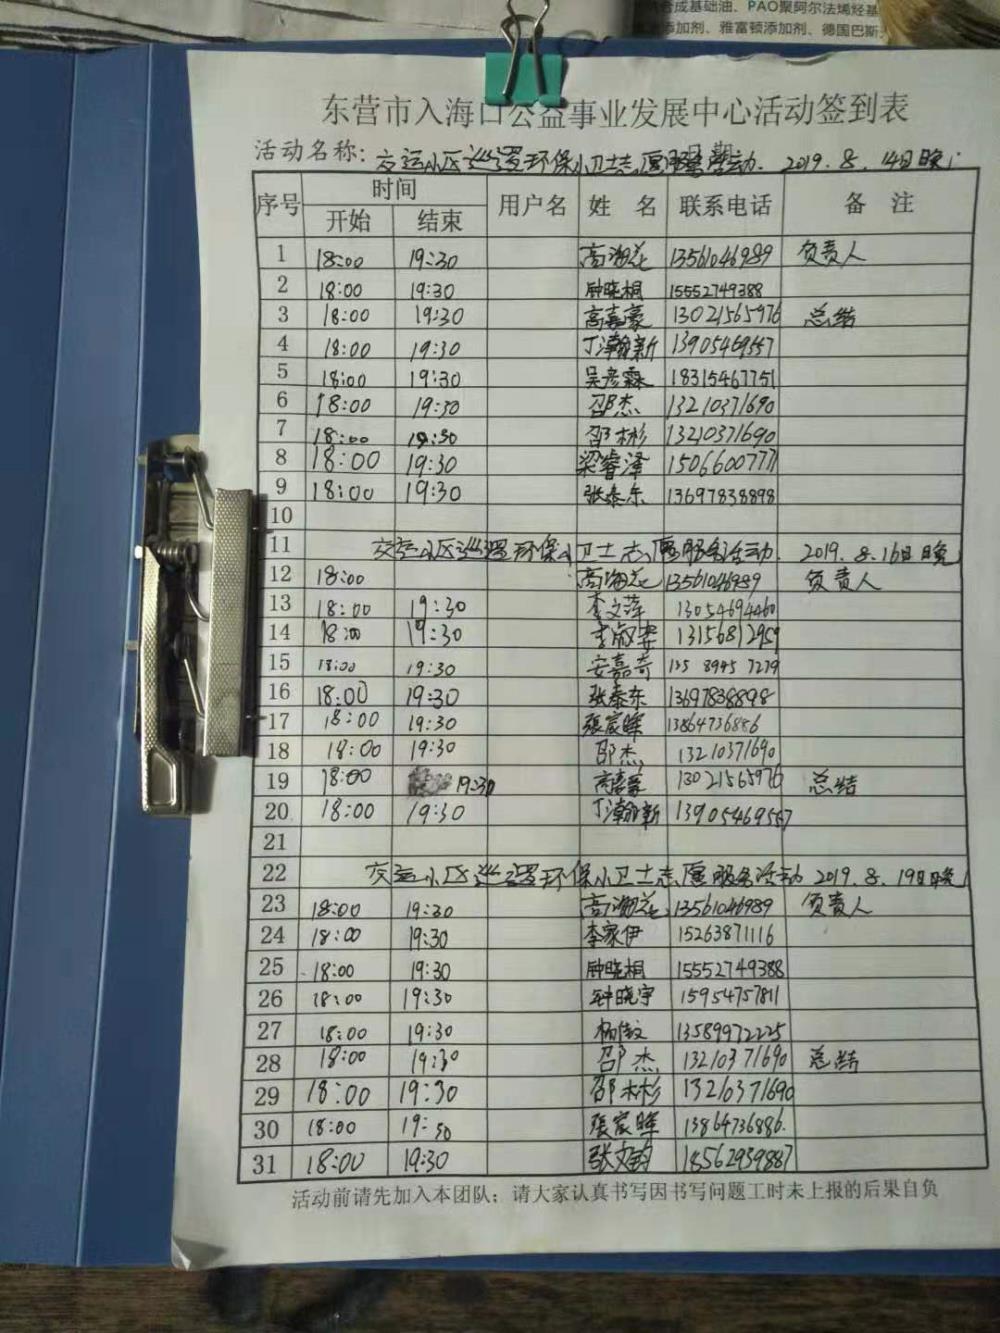 合成基础油、PAO聚阿尔法烯烃基
添加剂、雅富顿添加剂、德国巴斯
东营市入海口公益事业发展中心活动签到表
活动名称: 交运小区巡逻环保小卫士志愿服务活动. 2019.8.14日晚
序号 时间 用户名 姓 名 联系电话 备 注
开始 结束
1 18:00 19:30 高海花 13561046989 负责人
2 18:00 19:30 钟晓桐 15552749388
3 18:00 19:30 高嘉豪 13021565976 总结
4 18:00 19:30 丁瀚新 13905469557
5 18:00 19:30 吴彦霖 18315467751
6 18:00 19:30 邵杰 13210371690
7 18:00 19:30 邵彬彬 13210371690
8 18:00 19:30 梁睿泽 15066007771
9 18:00 19:30 张泰东 13697838898
10
11 交运小区巡逻环保小卫士志愿服务活动. 2019.8.16日晚
12 18:00 高海花 13561046989 负责人
13 18:00 19:30 李文萍 13054694460
14 18:00 19:30 13156812959
15 18:00 19:30 安嘉奇 135 8945 7279
16 18:00 19:30 张泰东 13697838898
17 18:00 19:30 張宸暉 13864736886
18 18:00 19:30 邵杰 13210371690
19 18:00 19:30 高嘉豪 13021565976 总结
20 18:00 19:30 丁瀚新 13905469557
21
22 交运小区巡逻环保小卫士志愿服务活动 2019.8.19日晚
23 18:00 19:30 高海花 13561046989 负责人
24 18:00 19:30 李家伊 15263871116
25 18:00 19:30 钟晓桐 15552749388
26 18:00 19:30 钟晓宇 15954757811
27 18:00 19:30 13589972225
28 18:00 19:30 邵杰 13210371690 总结
29 18:00 19:30 邵彬彬 13210371690
30 18:00 19:30 張宸暉 13864736886.
31 18:00 19:30 张文韵 18562939887
活动前请先加入本团队；请大家认真书写因书写问题工时未上报的后果自负